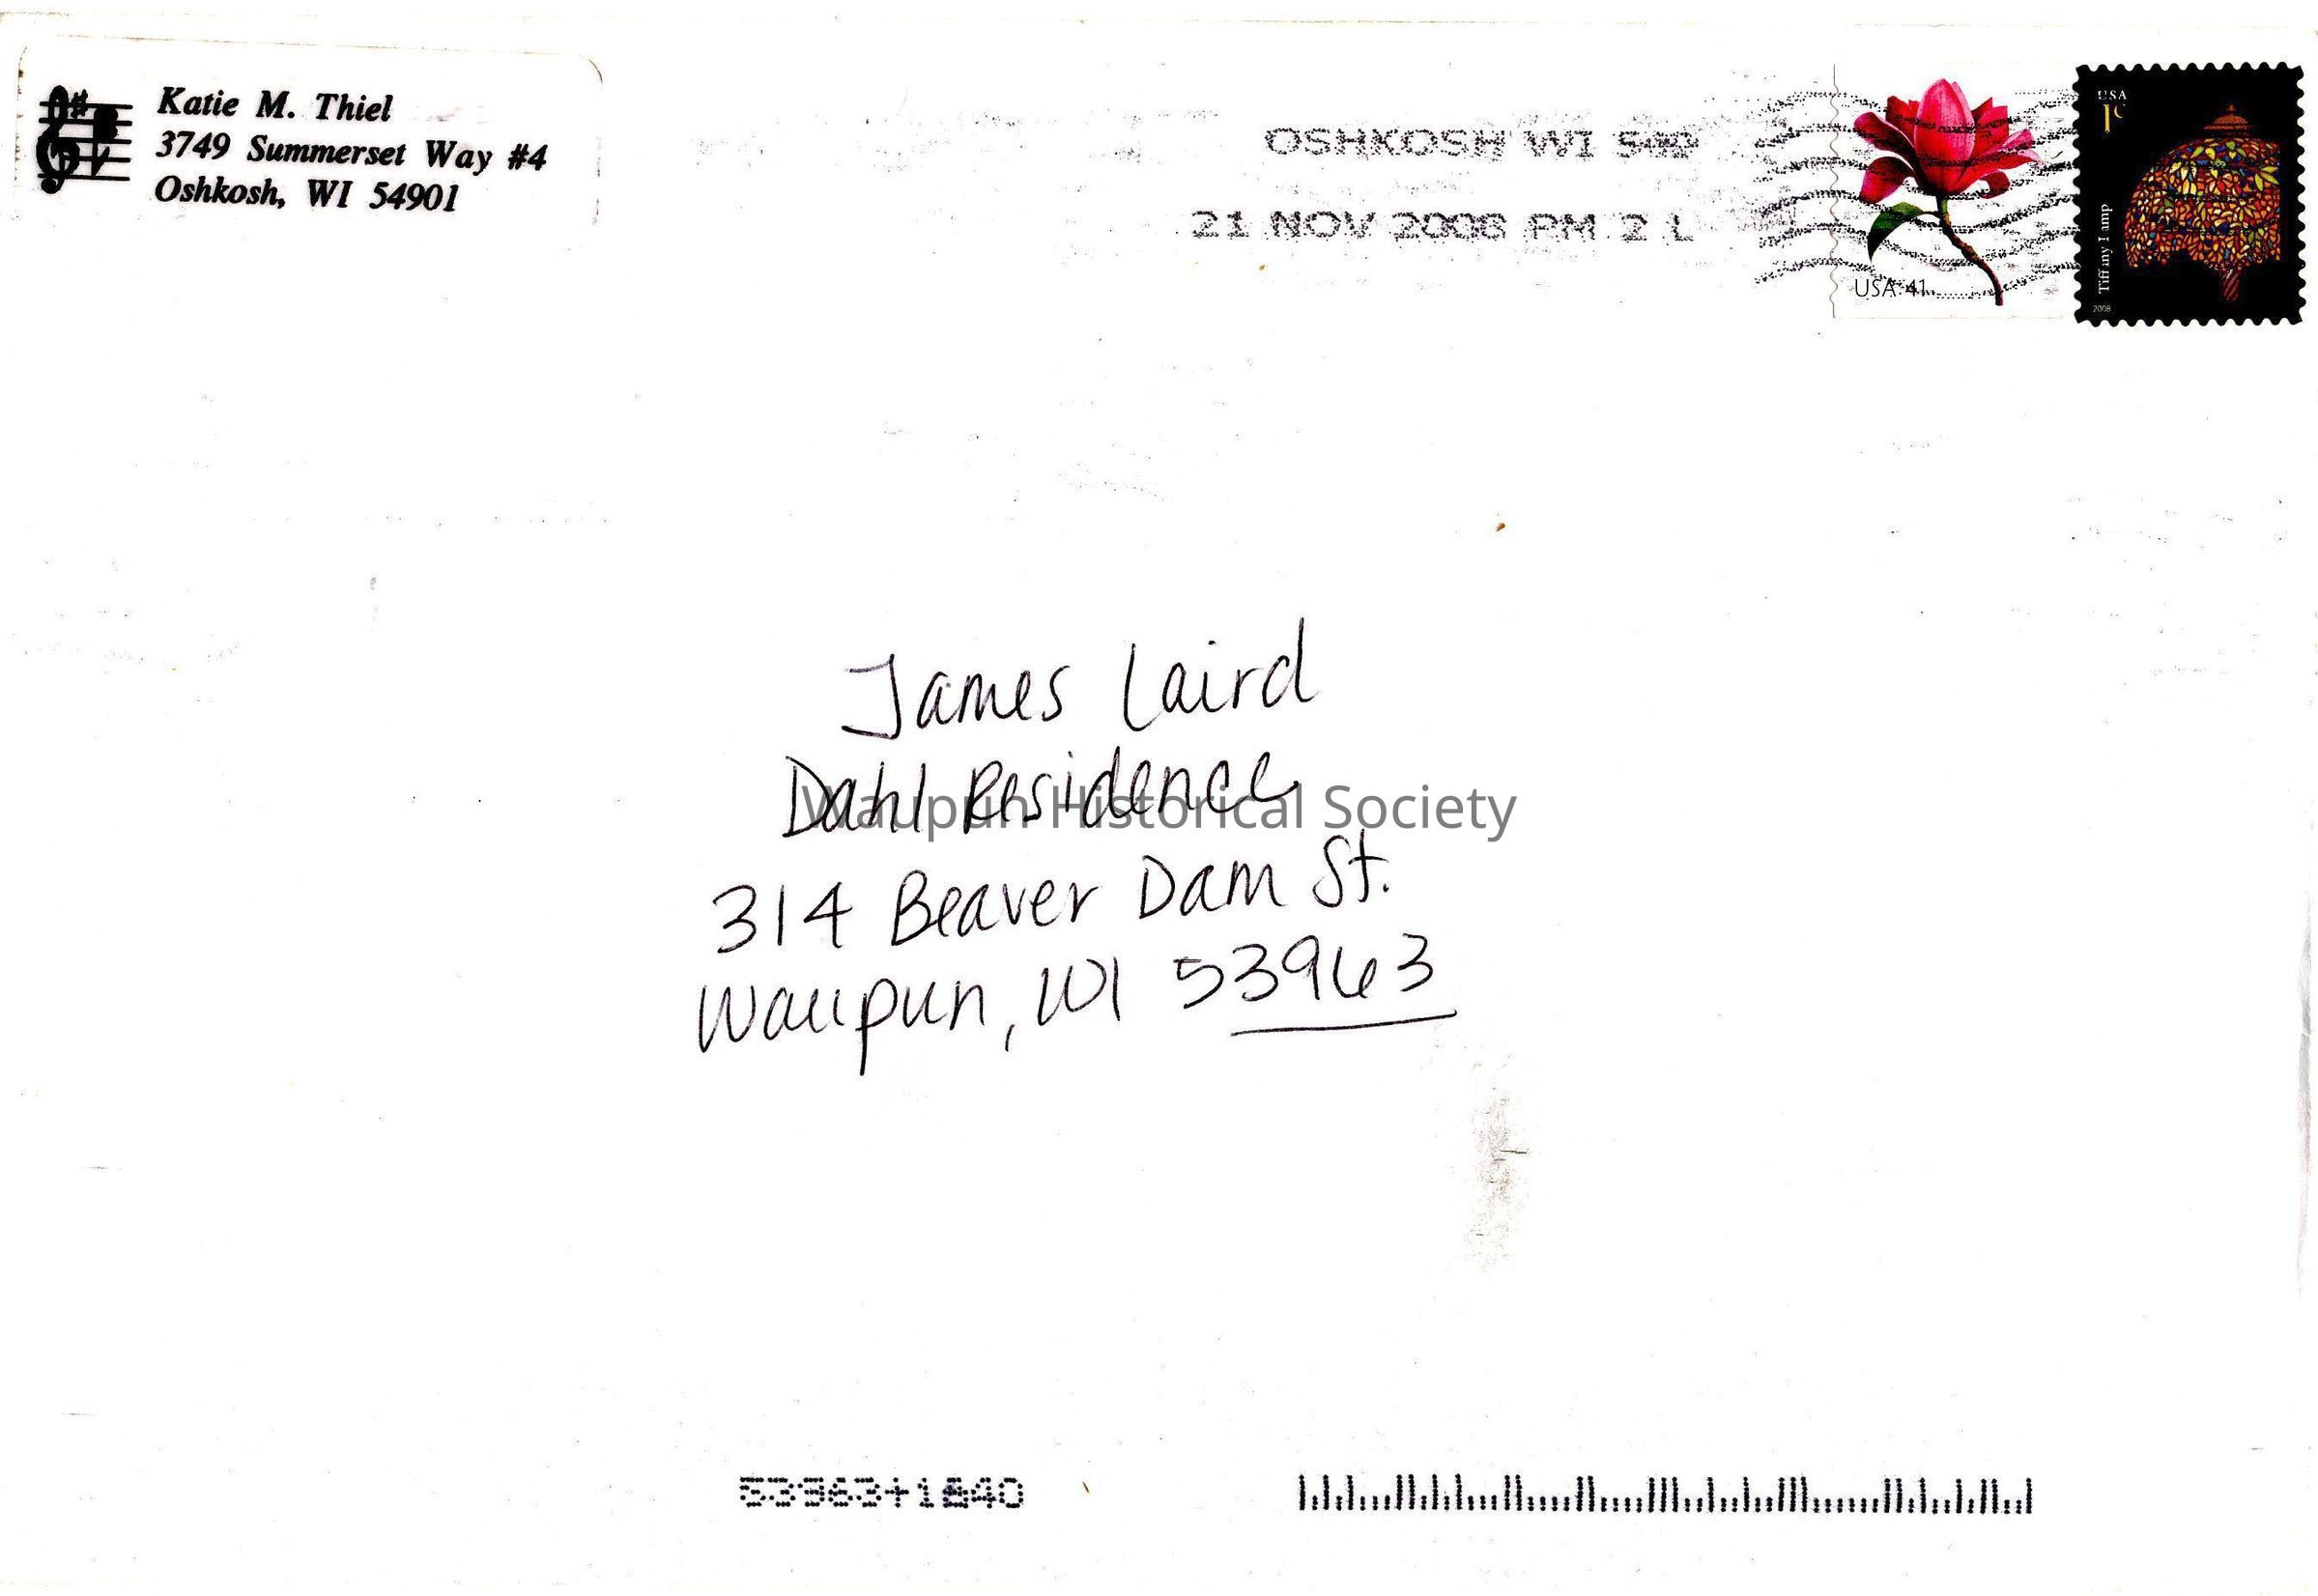 Katie M. Thiel
3749 Summerset Way #4
Oshkosh, WI 54901
OSHKOSH WI
21 NOV 2008 PM 2 L
USA 41
USA
1c
Tiffany Lamp
2008
James Laird
Dahl Residence
Waupun Historical Society
314 Beaver Dam St.
Waupun, WI 53963